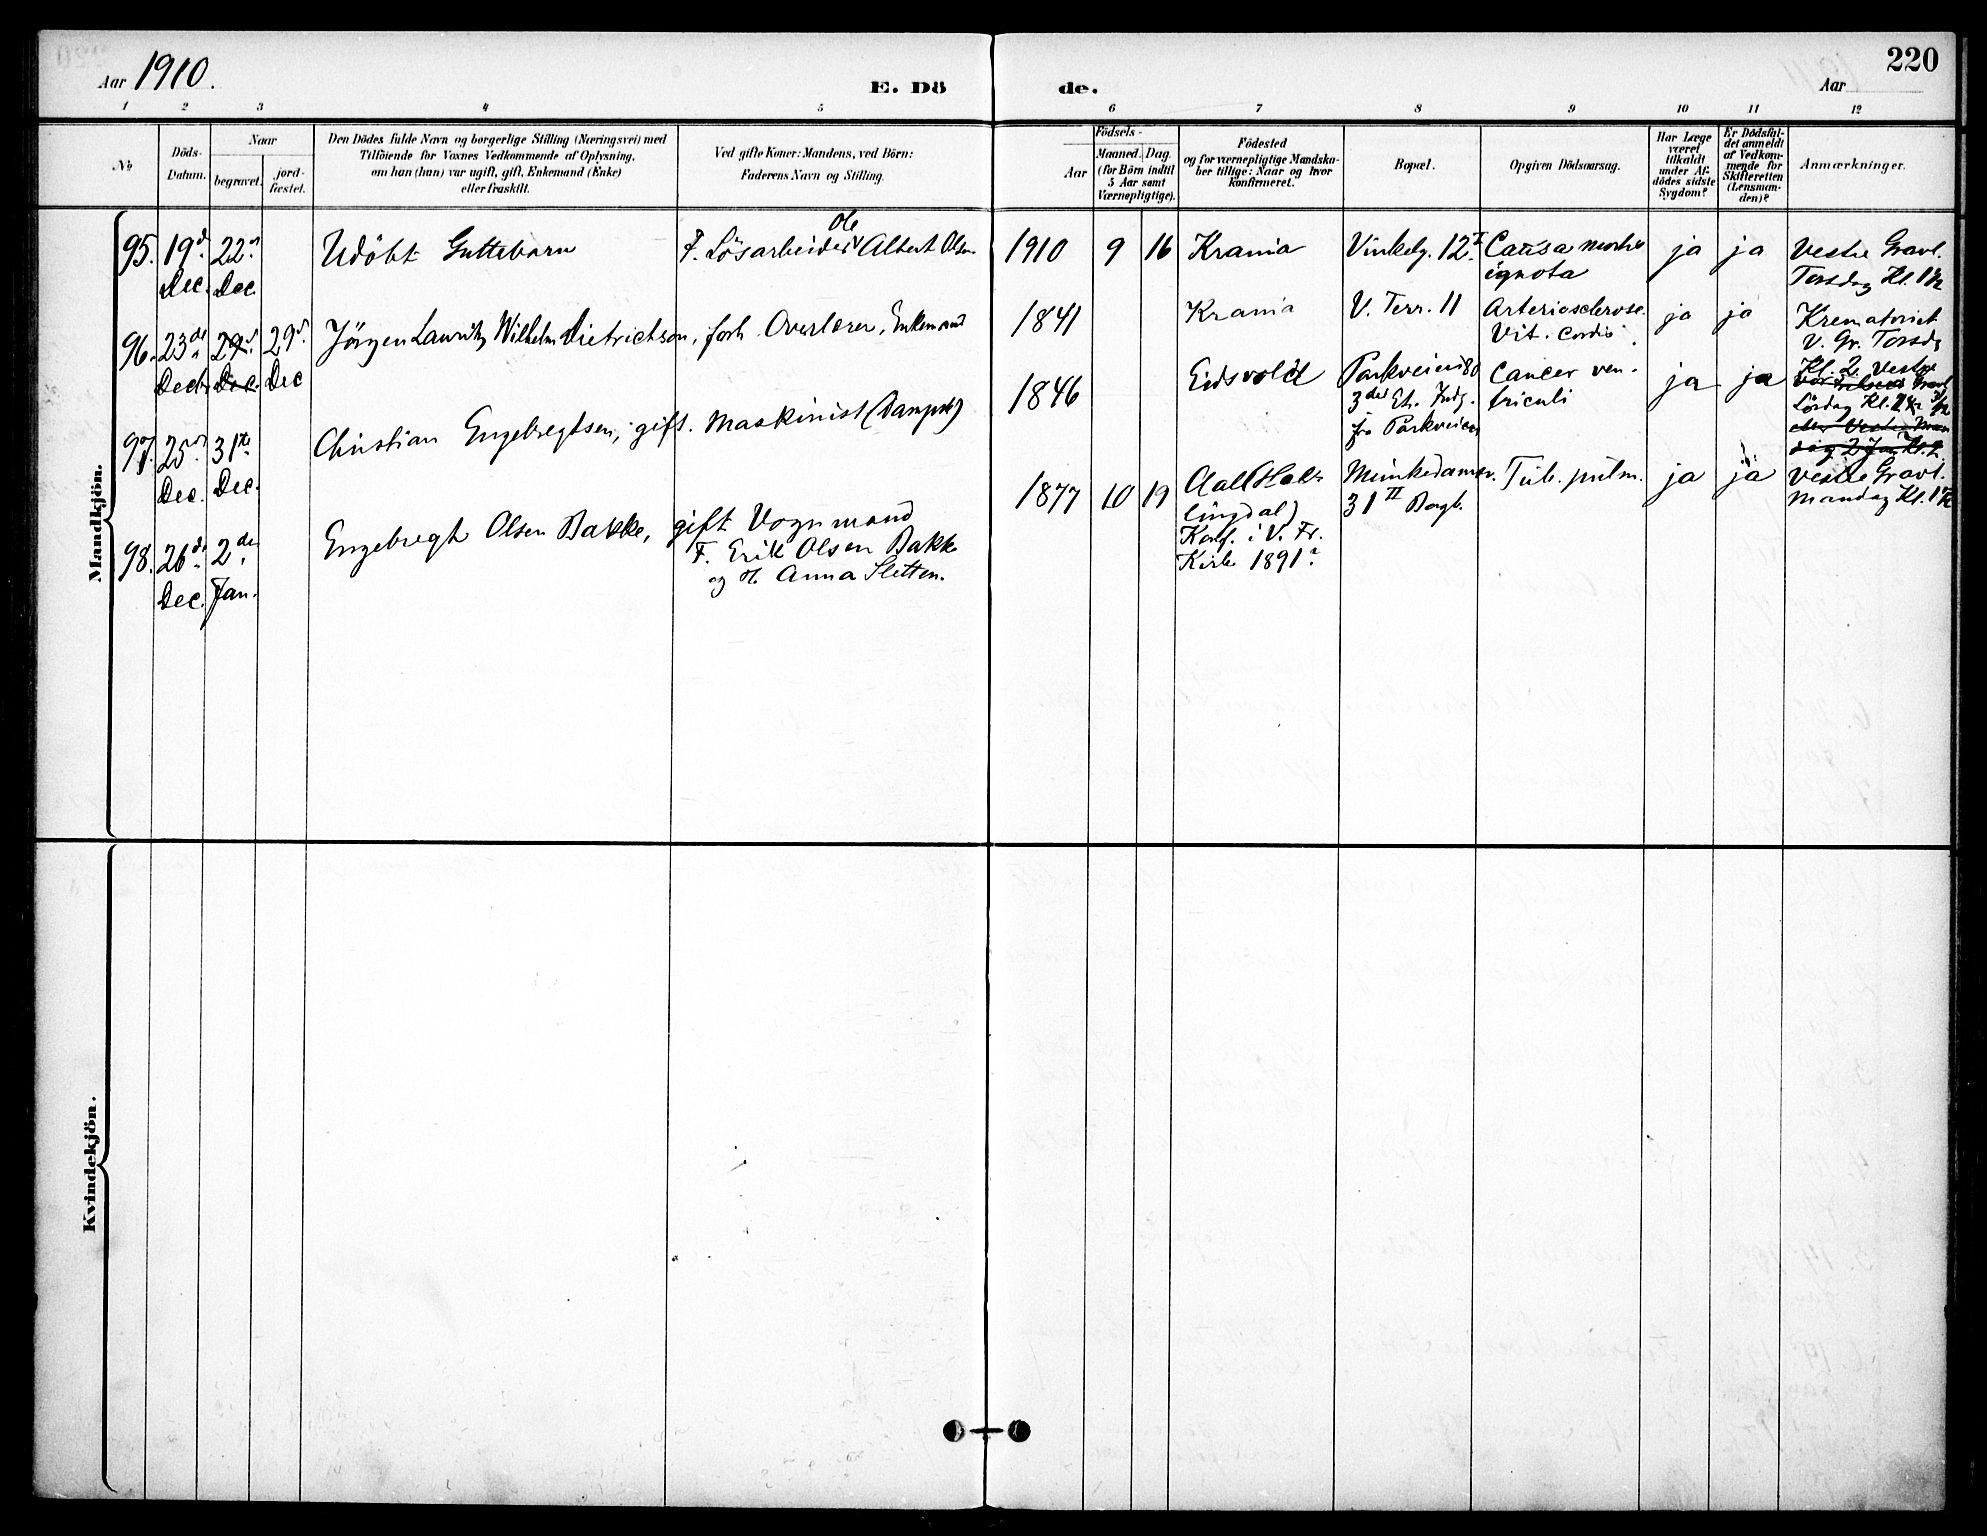 Aar 1910.
E. Dö
de.
220
Aar
1 2 3 4 5 6 7 8 9 10 11 12
No
Döds-
Datum.
Naar
begravet.
jord-
fæstet.
Den Dödes fulde Navn og borgerlige Stilling (Næringsvei) med
Tilföiende for Voxnes Vedkommende af Oplysning,
om han (hun) var ugift, gift, Enkemand (Enke)
eller fraskilt.
Ved gifte Koner: Mandens, ved Börn:
Faderens Navn og Stilling.
Födsels-
Aar
Maaned.
Dag.
(for Börn indtil
5 Aar samt
Værnepligtige).
Födested
og for værnepligtige Mandska-
ber tillige: Naar og hvor
konfirmeret.
Bopæl.
Opgiven Dödsaarsag.
Har Læge
været
tilkaldt
under Af-
dödes sidste
Sygdom?
Er Dödsfal-
det anmeldt
af Vedkom-
mende for
Skifteretten
(Lensman-
den)?
Anmærkninger.
Mandkjön.
95. 19d Dec. 22n Dec.
Udöbt Guttebarn
F. Lösarbeider Ole Albert Olsen
1910 9 16 Krania
Vinkelg. 12 I
Causa mortis
ignota
ja ja
Vestre Gravl.
Torsdag Kl. 1 1/2
96. 23de Decb. 29d Dec. 29d Dec
Jörgen Lauritz Wilhelm Dietrichson, forh. Overlærer, Enkemand
1841 Krania
V. Terr. 11
Arteriosclerose.
Vit. cordis.
ja ja
Krematoriet
V. Gr. Torsdg
Kl. 2 Vestre
97. 25d Dec. 31te Dec.
Christian Engebregtsen, gift. Maskinist (Dampsk)
1846 Eidsvold
Parkveien 80
3die Et. Indg.
fra Parkveien
Cancer ven-
triculi
ja ja
Gravl
Lördag Kl.
98. 26d Dec. 2den Jan.
Engebregt Olsen Bakke, gift Vognmand
F. Erik Olsen Bakke
og H. Anna Sletten.
1877 10 19
Aal (Hal-
lingdal)
Konf. i V. Fr.
Kirke 1891?
Munkedamsv.
31 II Borgb.
Tub. pulm.
ja ja
Vestre Gravl.
Mandag Kl. 1 1/2
Kvindekjön.